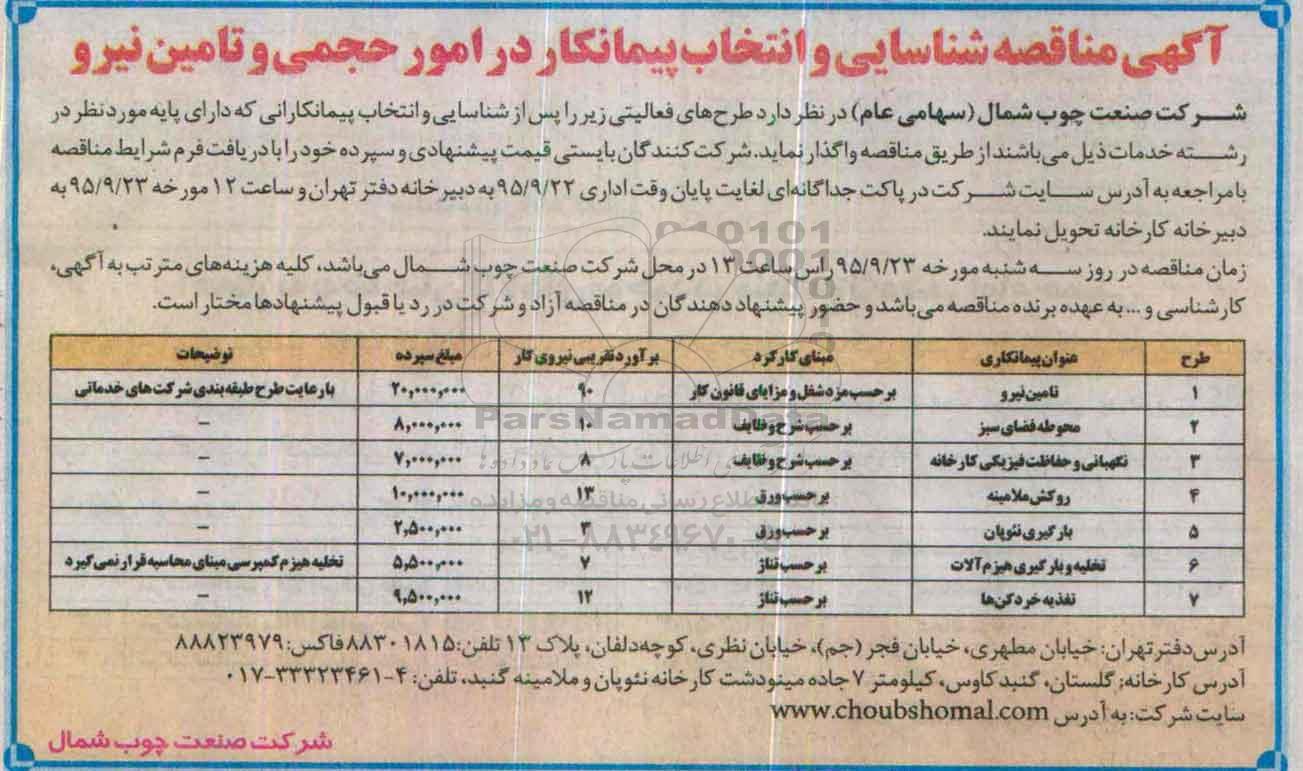 آگهی مناقصه شناسایی و انتخاب پیمانکار در امور حجمی و تامین نیرو
شرکت صنعت چوب شمال (سهامی عام) در نظر دارد طرح‌های فعالیتی زیر را پس از شناسایی و انتخاب پیمانکارانی که دارای پایه مورد نظر در
رشته خدمات ذیل می‌باشند از طریق مناقصه واگذار نماید. شرکت کنندگان بایستی قیمت پیشنهادی و سپرده خود را با دریافت فرم شرایط مناقصه
با مراجعه به آدرس سایت شرکت در پاکت جداگانه‌ای لغایت پایان وقت اداری ۹۵/۹/۲۲ به دبیرخانه دفتر تهران و ساعت ۱۲ مورخه ۹۵/۹/۲۳ به
دبیرخانه کارخانه تحویل نمایند.
زمان مناقصه در روز سه شنبه مورخه ۹۵/۹/۲۳ راس ساعت ۱۳ در محل شرکت صنعت چوب شمال می‌باشد، کلیه هزینه‌های مترتب به آگهی،
کارشناسی و ... به عهده برنده مناقصه می‌باشد و حضور پیشنهاد دهندگان در مناقصه آزاد و شرکت در رد یا قبول پیشنهادها مختار است.
طرح عنوان پیمانکاری مبنای کارکرد برآورد تقریبی نیروی کار مبلغ سپرده توضیحات
۱ تامین نیرو برحسب مزد شغل و مزایای قانون کار ۹۰ ۲۰,۰۰۰,۰۰۰ با رعایت طرح طبقه بندی شرکت های خدماتی
۲ محوطه فضای سبز برحسب شرح وظایف ۱۰ ۸,۰۰۰,۰۰۰ –
۳ نگهبانی و حفاظت فیزیکی کارخانه برحسب شرح وظایف ۸ ۷,۰۰۰,۰۰۰ –
۴ روکش ملامینه برحسب ورق ۱۳ ۱۰,۰۰۰,۰۰۰ –
۵ بارگیری نئوپان برحسب ورق ۳ ۲,۵۰۰,۰۰۰ –
۶ تخلیه و بارگیری هیزم آلات برحسب تناژ ۷ ۵,۵۰۰,۰۰۰ تخلیه هیزم کمپرسی مبنای محاسبه قرار نمی گیرد
۷ تغذیه خردکن‌ها برحسب تناژ ۱۲ ۹,۵۰۰,۰۰۰ –
آدرس دفتر تهران: خیابان مطهری، خیابان فجر (جم)، خیابان نظری، کوچه دلفان، پلاک ۱۳ تلفن: ۸۸۳۰۱۸۱۵ فاکس: ۸۸۸۲۳۹۷۹
آدرس کارخانه: گلستان، گنبد کاوس، کیلومتر ۷ جاده مینودشت کارخانه نئوپان و ملامینه گنبد، تلفن: ۴-۰۱۷-۳۳۳۲۳۴۶۱
سایت شرکت: به آدرس www.choubshomal.com
شرکت صنعت چوب شمال
ParsNamadData
۰۲۱-۸۸۳۴۹۶۷۰